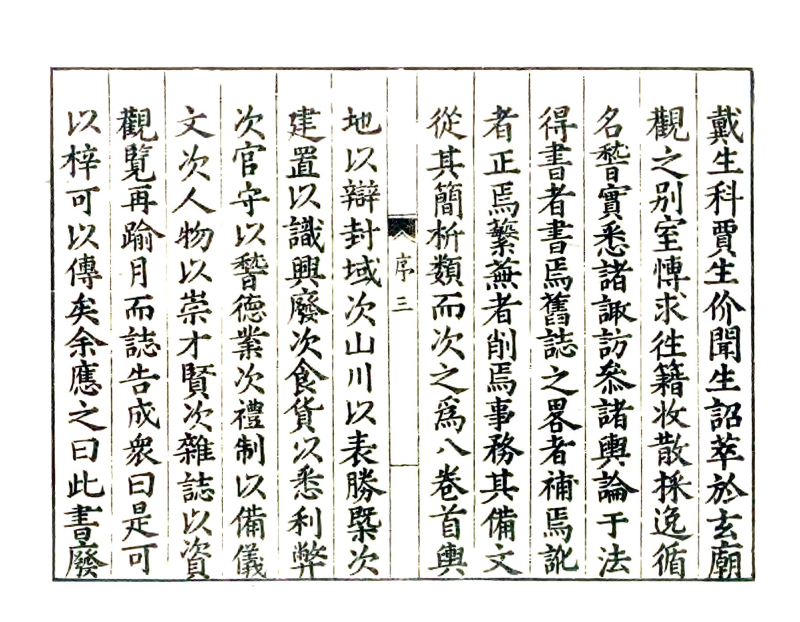 戴生科賈生价聞生詔萃於玄廟
觀之别室愽求徃籍收散採逸循
名嵇實悉諸諏訪叅諸輿論于法
得書者書焉舊誌之畧者補焉訛
者正焉蘩蕪者削焉事務其備文
從其簡析類而次之爲八卷首輿
序三
地以辯封域次山川以表勝槩次
建置以識興廢次食貨以悉利弊
次官守以嵇德業次禮制以備儀
文次人物以崇才賢次雜誌以資
觀覽再踰月而誌告成衆曰是可
以梓可以傳矣余應之曰此書廢